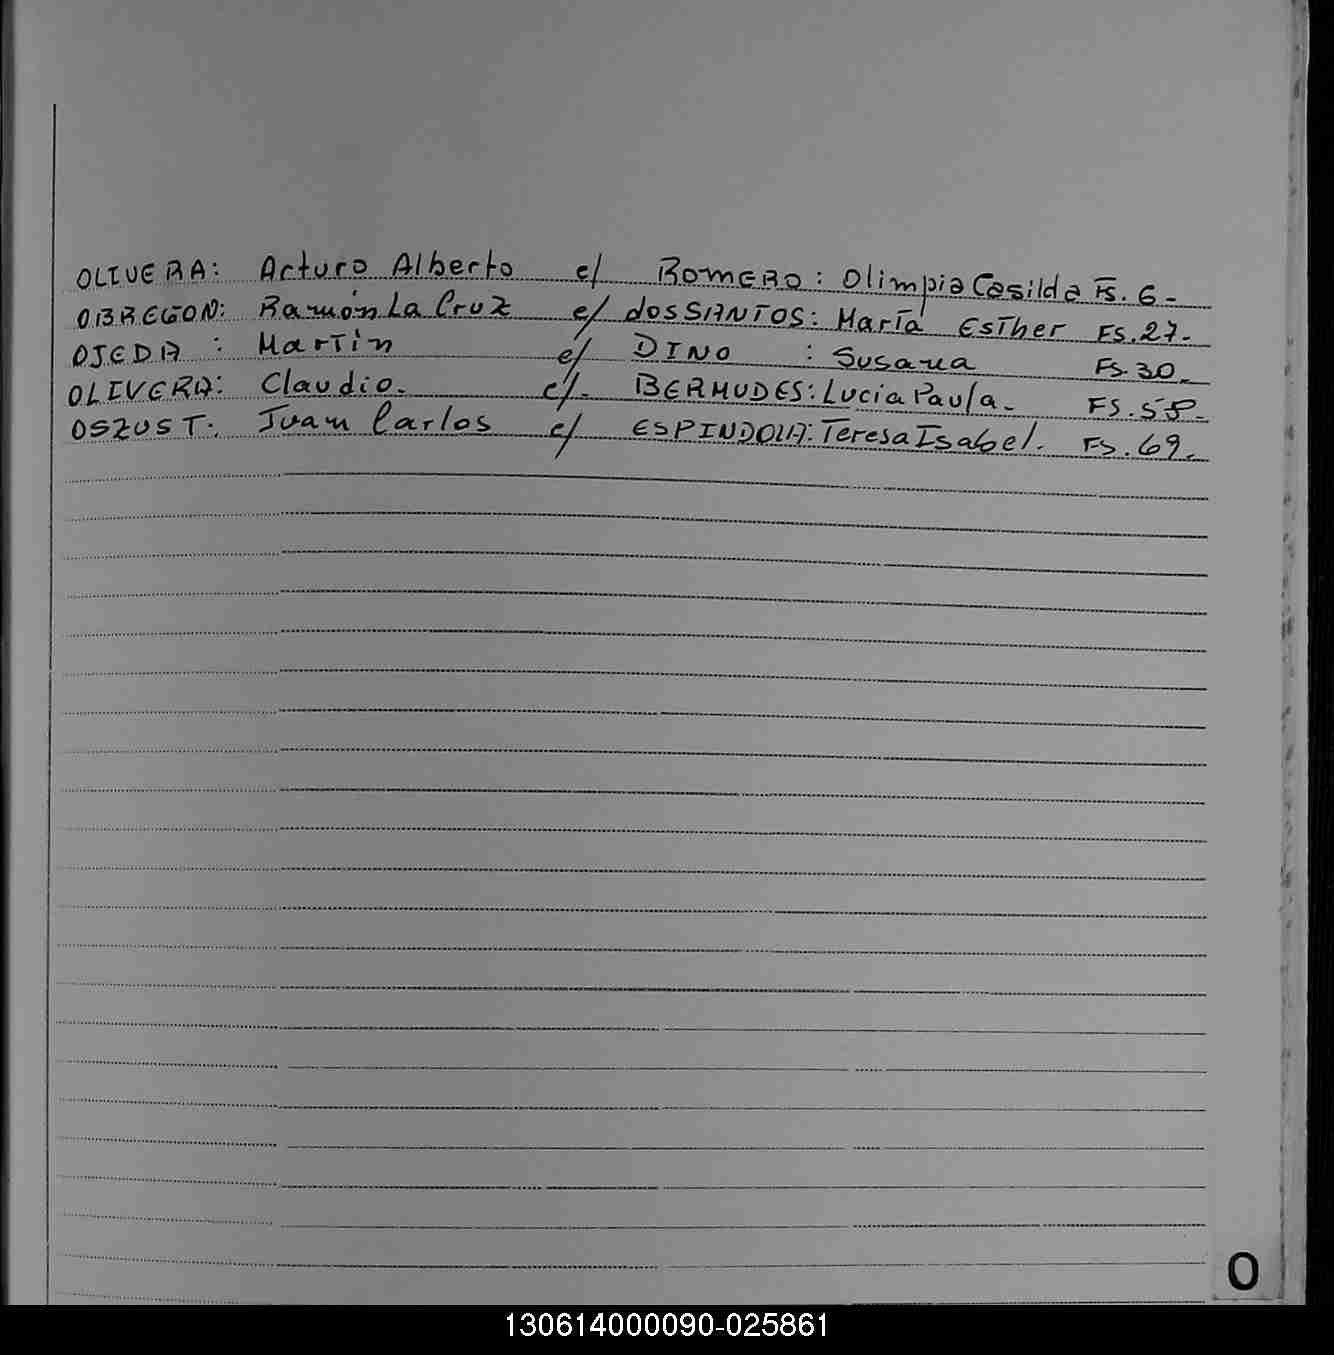 OLIVERA: Arturo Alberto c/ ROMERO: Olimpia Casilda FS. 6-
OBREGON: Ramón La Cruz c/ dosSANTOS: María Esther FS. 27.-
OJEDA : Martín c/ DINO : Susana FS. 30.-
OLIVERA: Claudio. c/. BERMUDES: Lucia Paula.- FS. 58.-
OSZUST: Juan Carlos c/ ESPINDOLA: Teresa Isabel. FS. 69.-
O
130614000090-025861